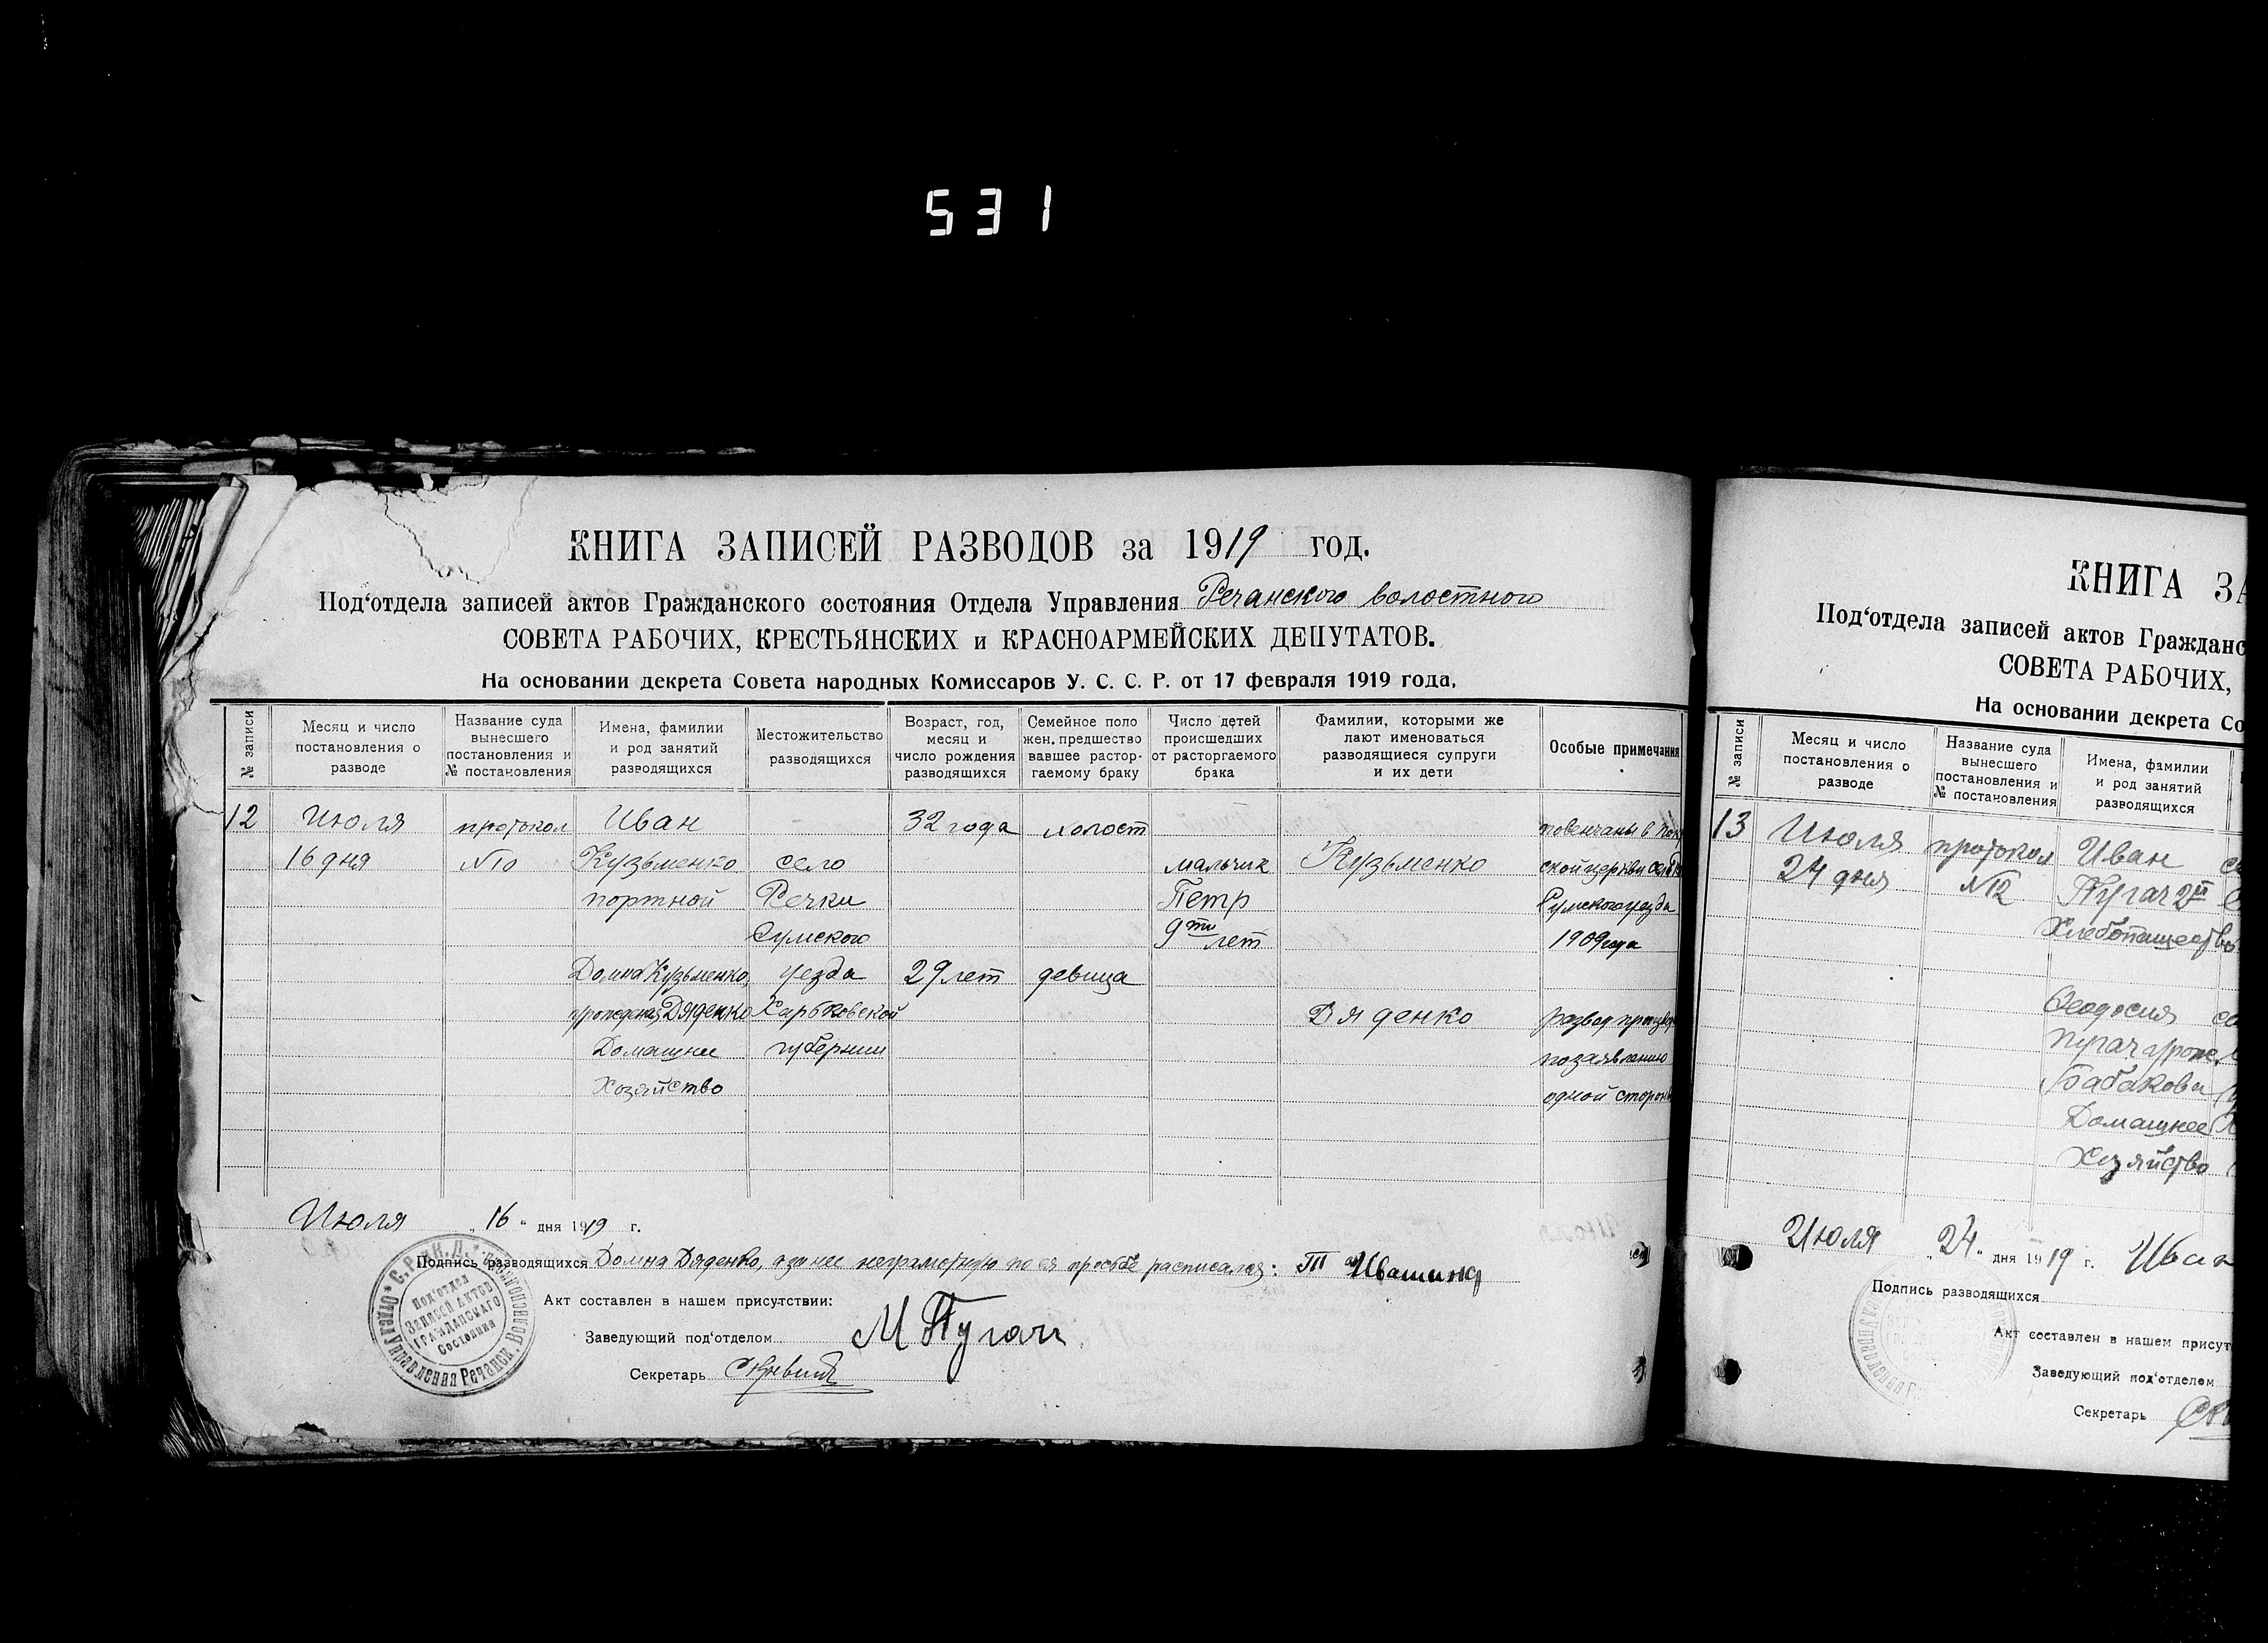 531
КНИГА ЗАПИСЕЙ РАЗВОДОВ за 1919 год.
Под‘отдела записей актов Гражданского состояния Отдела Управления Речанского волостного
СОВЕТА РАБОЧИХ, КРЕСТЬЯНСКИХ и КРАСНОАРМЕЙСКИХ ДЕПУТАТОВ.
На основании декрета Совета народных Комиссаров У. С. С. Р. от 17 февраля 1919 года.
№ записи
Месяц и число
постановления о
разводе
Название суда
вынесшего
постановления и
№ постановления
Имена, фамилии
и род занятий
разводящихся
Местожительство
разводящихся
Возраст, год,
месяц и
число рождения
разводящихся
Семейное поло
жен. предшество
вавшее растор-
гаемому браку
Число детей
происшедших
от расторгаемого
брака
Фамилии, которыми же
лают именоваться
разводящиеся супруги
и их дети
Особые примечания
12
Июля
16 дня
протокол
№10
Иван
Кузьменко
портной
Домна Кузьменко,
урожденная Дяденко
Домашнее
Хозяйство
село
Речки
Сумского
уезда
Харьковской
губернии
32 года
29 лет
холост
девица
мальчик
Петр
9ти лет
Кузьменко
Дяденко
повенчаны в
ской церкви
Сумского уезда
1909 года
развод
по заявлению
одной стороны
Июля „16“ дня 1919 г.
Подпись разводящихся Домна Дяденко, а за нее неграмотную по ея просьбе расписался: Ивашина
Акт составлен в нашем присутствии:
Заведующий под‘отделом М Пугач
Секретарь
Под‘отдел
Записей Актов
Гражданскаго
Состояния
Отдел Управления Речанск. Волисполкома
КНИГА ЗА
Под‘отдела записей актов Гражданс
СОВЕТА РАБОЧИХ,
На основании декрета Со
№ записи
Месяц и число
постановления о
разводе
Название суда
вынесшего
постановления и
№ постановления
Имена, фамилии
и род занятий
разводящихся
13
Июля
24 дня
протокол
№12
Иван
Пугач 2й
Хлебопашество
Феодосия
Пугач урож.
Бабакова
Домашнее
Хозяйство
Июля „24“ дня 1919 г. Иван
Подпись разводящихся
Акт составлен в нашем присут
Заведующий под‘отделом
Секретарь